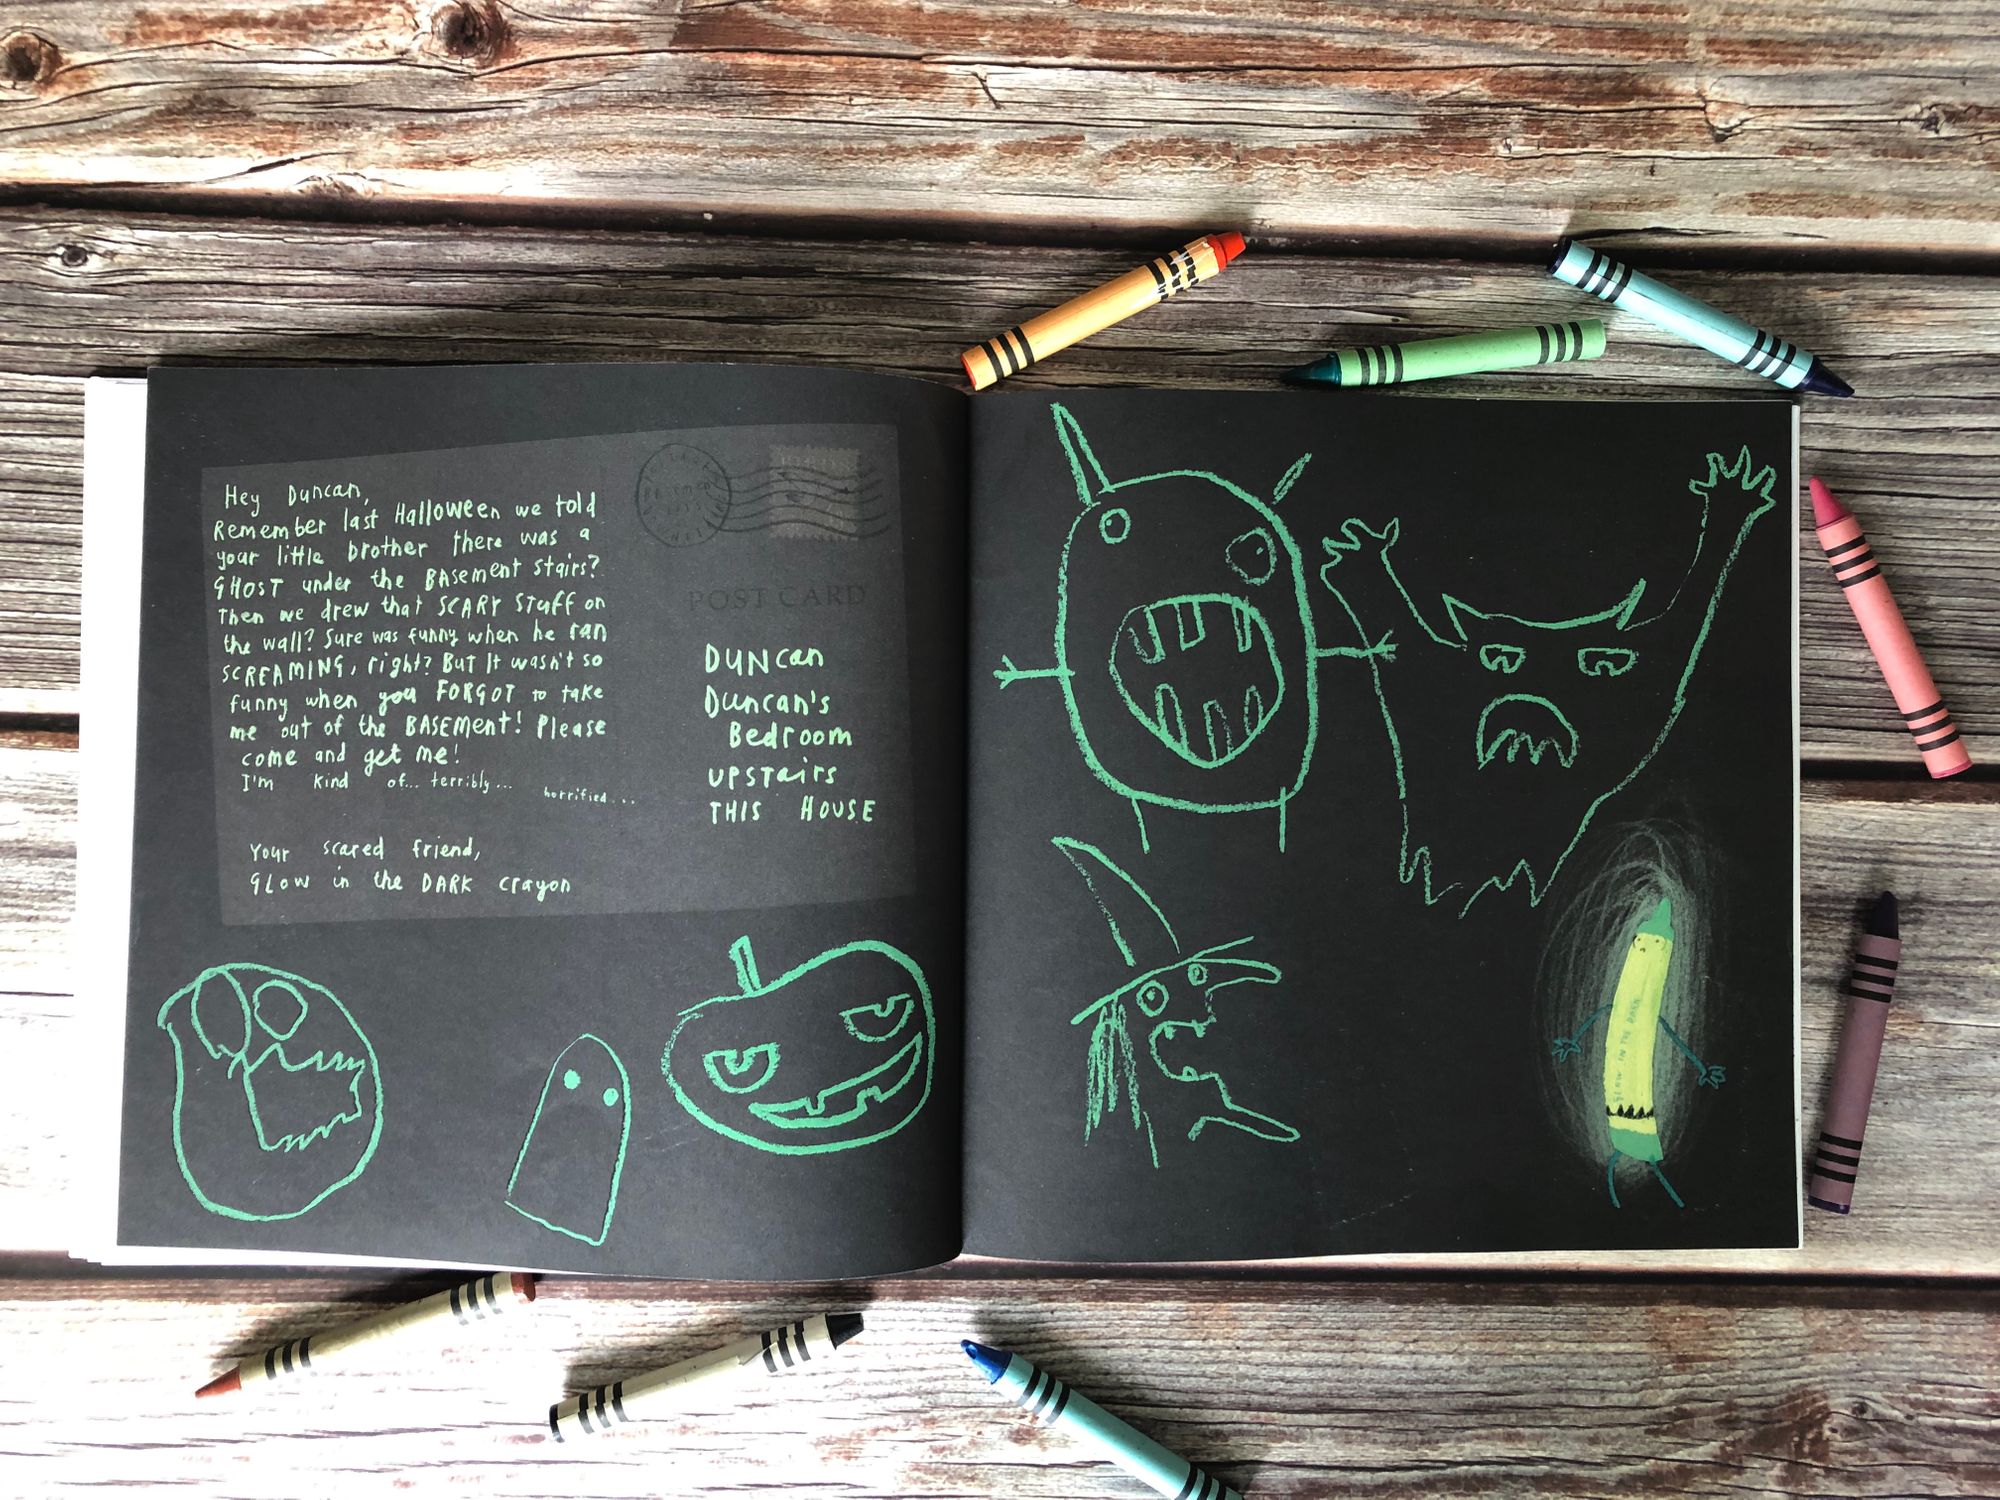 Hey Duncan,
Remember last Halloween we told
your little brother there was a
GHOST under the BASEMENT stairs?
Then we drew that SCARY STUFF on
the wall? Sure was funny when he ran
SCREAMING, right? But It wasn't so
funny when you FORGOT to take
me out of the BASEMENT! Please
come and get me!
I'm kind of... terribly... horrified...
Your scared friend,
GLOW in the DARK crayon
POST CARD
DUNCan
Duncan's
Bedroom
UPSTairs
THIS HOUSE
GLOW IN THE DARK